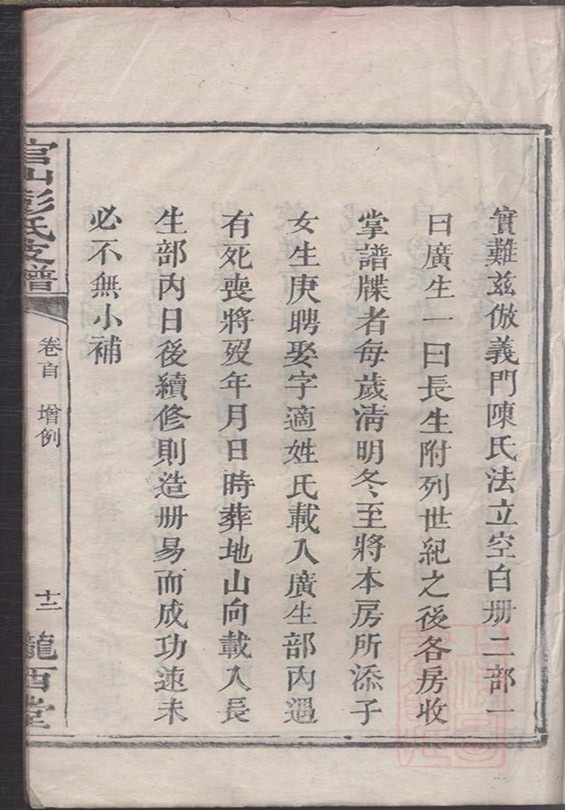 實難茲倣義門陳氏法立空白册二部一
曰廣生一曰長生附列世紀之後各房收
掌譜牒者每歲清明冬至將本房所添子
女生庚聘娶字適姓氏載入廣生部內遇
有死喪將歿年月日時葬地山向載入長
生部內日後續修則造册易而成功速未
必不無小補
官山彭氏支譜
卷首 增例
十二
隴西堂